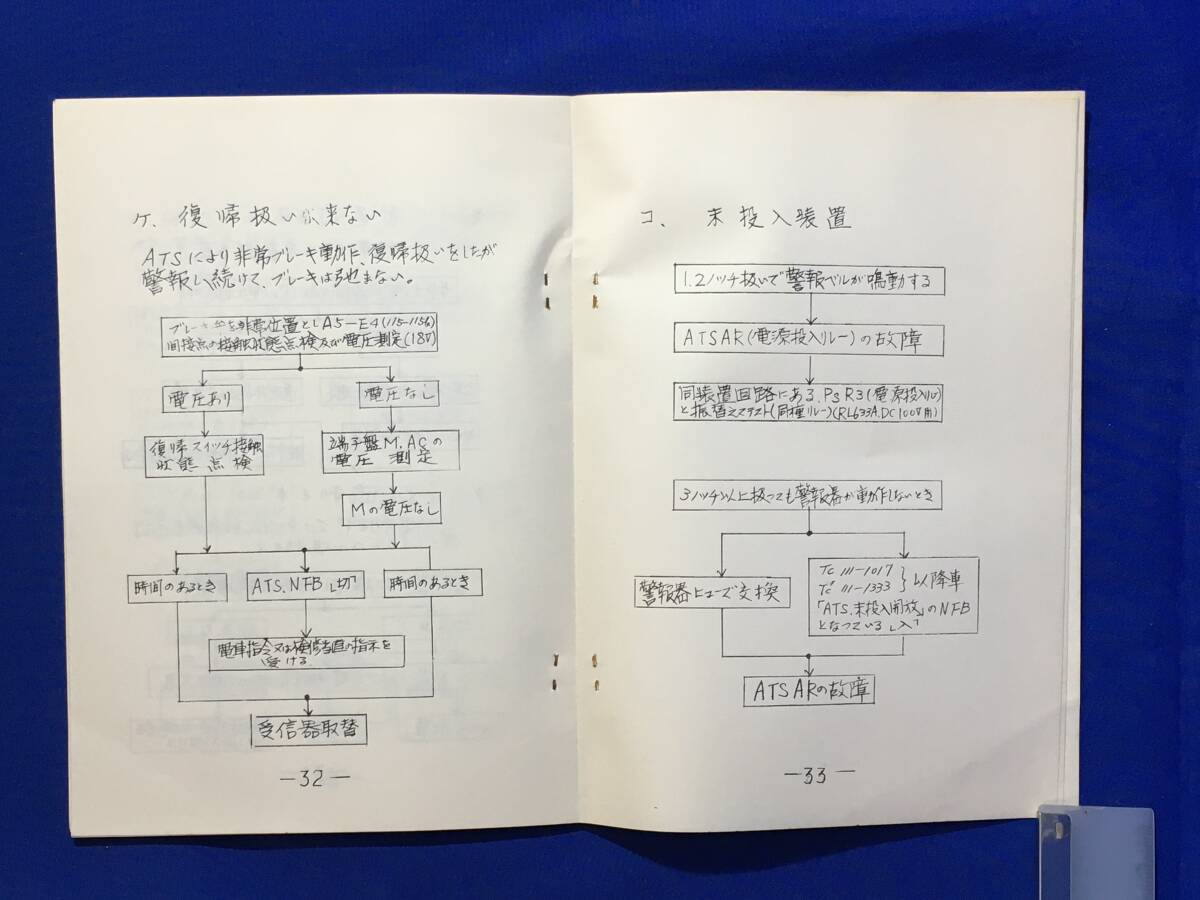 ケ、復帰扱い出来ない
ATSにより非常ブレーキ動作、復帰扱いをしたが
警報し続けて、ブレーキは弛まない。
ブレーキ弁を非常位置としA5-E4(115-115b)
間接点の接触状態点検及び電圧測定(18V)
電圧あり
電圧なし
復帰スイッチ接触
状態点検
端子盤M.ACの
電圧測定
Mの電圧なし
時間のあるとき
ATS.NFB「切」
時間のあるとき
電車指令又は検修当直の指示を
受ける
受信器取替
-32-
コ、未投入装置
1.2ノッチ扱いで警報ベルが鳴動する
ATSAR(電源投入リレー)の故障
同装置回路にある.PSR3(電源投入リレ)
と振替えてテスト(同種リレー)(RL633A.DC100V用)
3ノッチ以上扱っても警報器が動作しないとき
警報器ヒューズ交換
Tc 111-1017
Tc' 111-1333 } 以降車
「ATS.未投入開放」のNFB
となっている「入」
ATSARの故障
-33-